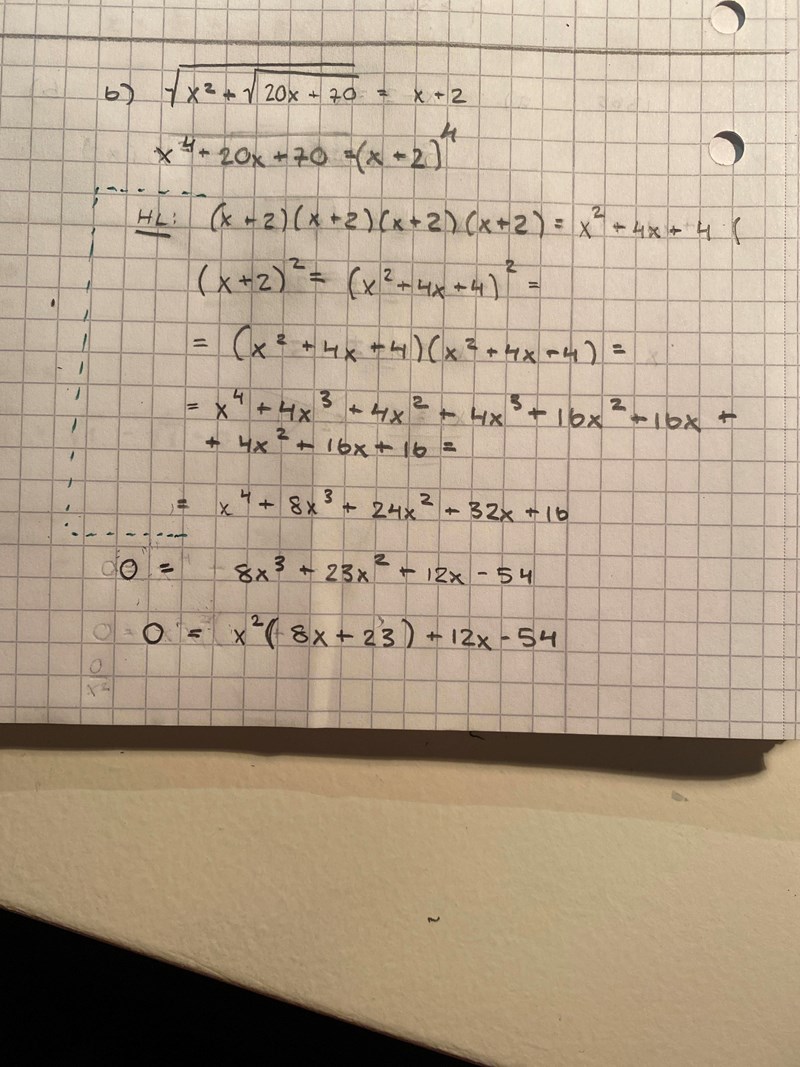 b) √(x² + √(20x + 70)) = x + 2
x⁴ + 20x + 70 = (x + 2)⁴
HL: (x + 2)(x + 2)(x + 2)(x + 2) = x² + 4x + 4 (
(x + 2)² = (x² + 4x + 4)² =
= (x² + 4x + 4)(x² + 4x + 4) =
= x⁴ + 4x³ + 4x² + 4x³ + 16x² + 16x +
+ 4x² + 16x + 16 =
= x⁴ + 8x³ + 24x² + 32x + 16
0 = 8x³ + 23x² + 12x - 54
0 = x²( 8x + 23 ) + 12x - 54